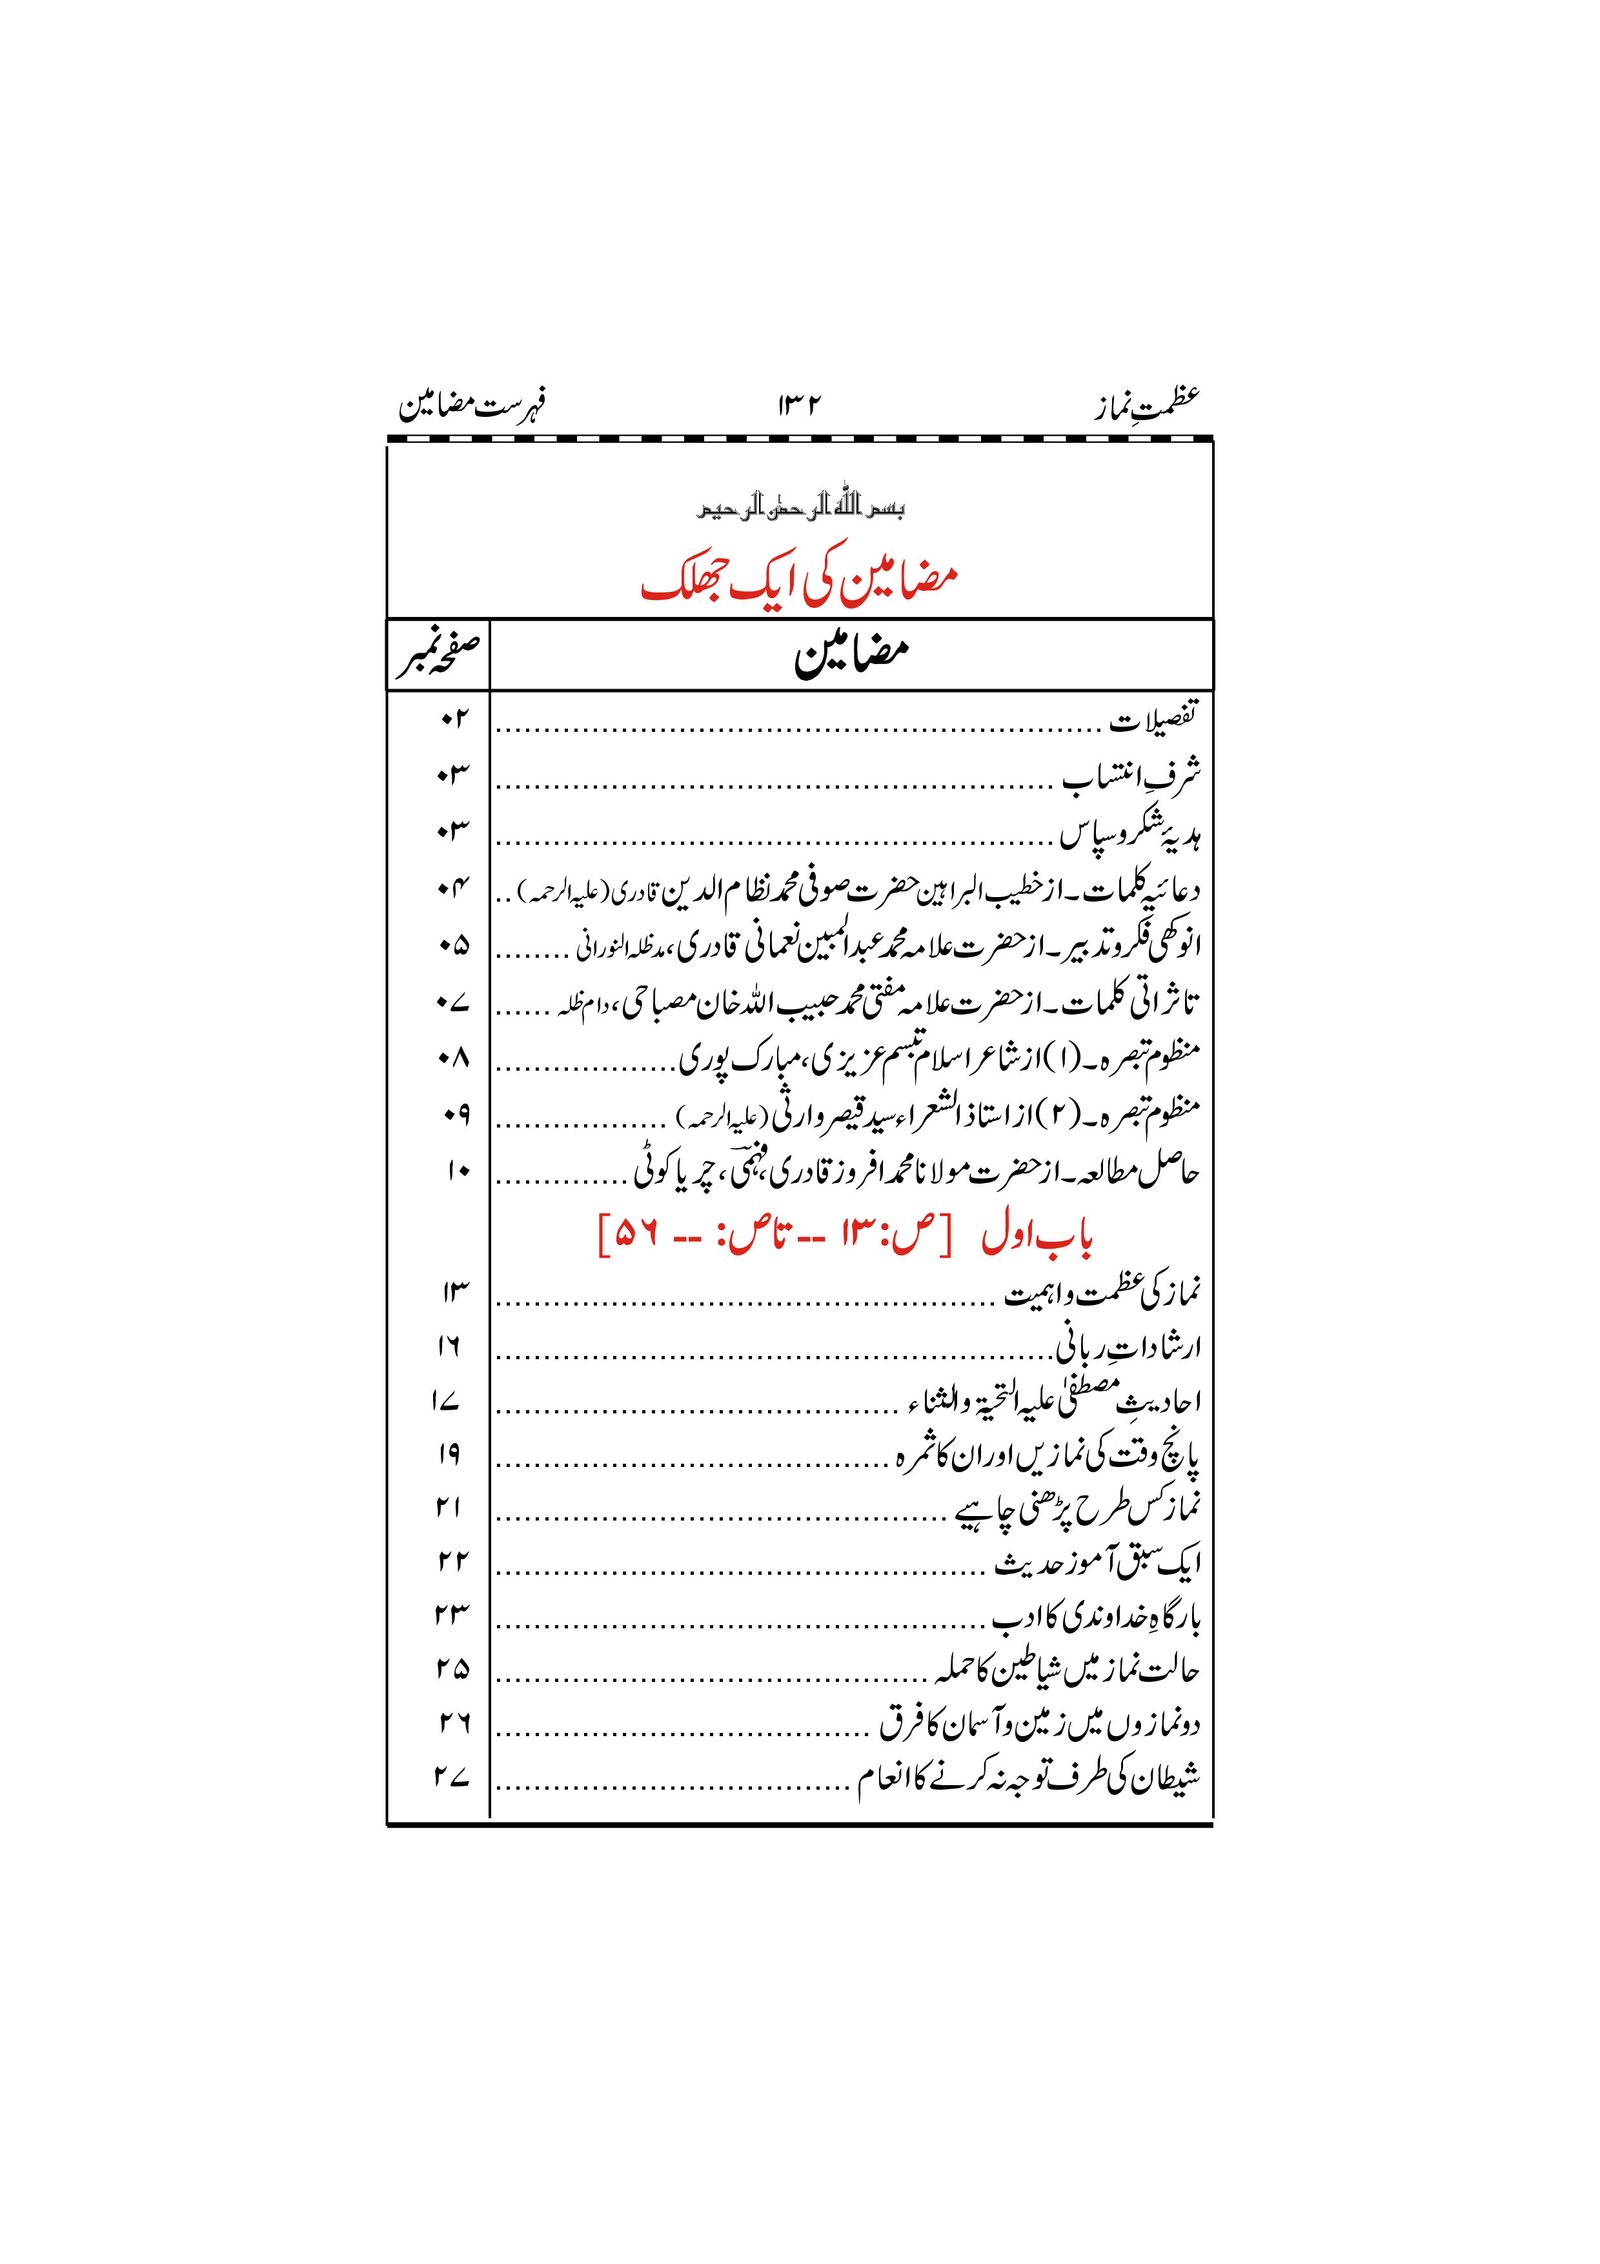 عظمتِ نماز ۱۳۲ فہرست مضامین
بسم اللہ الرحمٰن الرحیم
مضامین کی ایک جھلک
مضامین صفحہ نمبر
تفصیلات ............................................................... ۰۲
شرفِ انتساب .......................................................... ۰۳
ہدیۂ شکر و سپاس .......................................................... ۰۳
دعائیہ کلمات۔ از خطیب البراہین حضرت صوفی محمد نظام الدین قادری (علیہ الرحمہ) .. ۰۴
انوکھی فکر و تدبیر۔ از حضرت علامہ محمد عبدالمبین نعمانی قادری، مدظلہ النورانی ........ ۰۵
تاثراتی کلمات۔ از حضرت علامہ مفتی محمد حبیب اللہ خان مصباحی، دام ظلہ ...... ۰۷
منظوم تبصرہ۔ (۱) از شاعر اسلام تبسم عزیزی، مبارک پوری................... ۰۸
منظوم تبصرہ۔ (۲) از استاذ الشعراء سید قیصر وارثی (علیہ الرحمہ) .................. ۰۹
حاصل مطالعہ۔ از حضرت مولانا محمد افروز قادری، فہمیؔ، چریا کوٹی .............. ۱۰
باب اول [ص: ۱۳ -- تا ص: -- ۵۶]
نماز کی عظمت و اہمیت .................................................... ۱۳
ارشاداتِ ربانی.......................................................... ۱۶
احادیثِ مصطفیٰ علیہ التحیۃ والثناء .......................................... ۱۷
پانچ وقت کی نمازیں اور ان کا ثمرہ ......................................... ۱۹
نماز کس طرح پڑھنی چاہیے ............................................... ۲۱
ایک سبق آموز حدیث ................................................... ۲۲
بارگاہِ خداوندی کا ادب ................................................... ۲۳
حالت نماز میں شیاطین کا حملہ ............................................. ۲۵
دو نمازوں میں زمین و آسمان کا فرق ....................................... ۲۶
شیطان کی طرف توجہ نہ کرنے کا انعام ..................................... ۲۷